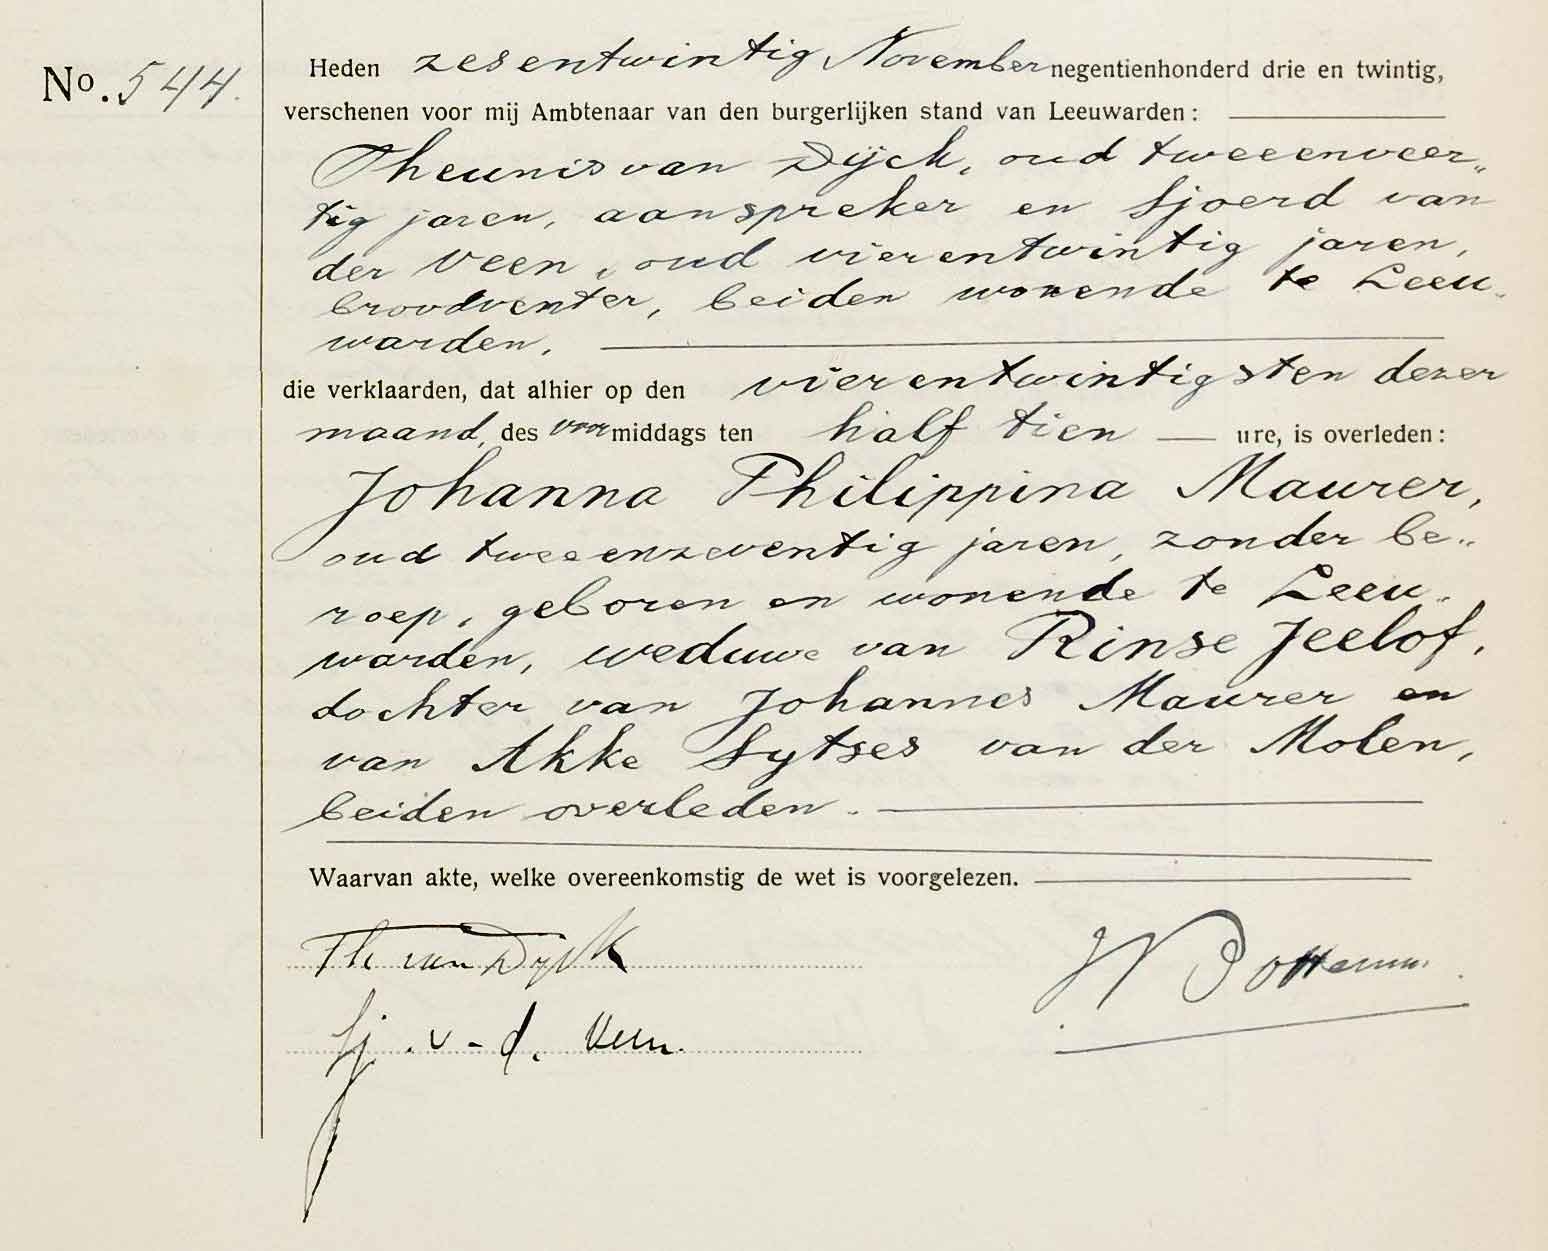 No. 544.
Heden zesentwintig November negentienhonderd drie en twintig,
verschenen voor mij Ambtenaar van den burgerlijken stand van Leeuwarden:
Theunis van Dijck, oud tweeenveer„
tig jaren, aanspreker en Sjoerd van
der Veen, oud vierentwintig jaren,
broodventer, beiden wonende te Leeu„
warden.
die verklaarden, dat alhier op den vierentwintigsten dezer
maand, des voormiddags ten half tien — ure, is overleden:
Johanna Philippina Maurer,
oud tweeenzeventig jaren, zonder be„
roep, geboren en wonende te Leeu„
warden, weduwe van Rinse Jeelof,
dochter van Johannes Maurer en
van Akke Sytses van der Molen,
beiden overleden.
Waarvan akte, welke overeenkomstig de wet is voorgelezen.
Th van Dijk
Sj. v-d. Veen.